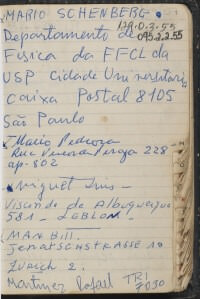 MARIO SCHENBERG.
Departamento de
Física da FFCL da
USP Cidade Universitaria
Caixa Postal 8105
São Paulo
Mario Pedroza
Rua Visconde Piraja 228 -
ap-802
Miguel Luis -
Visconde de Albuquerque
581 - LEBLON.
MAX Bill.
JENATSCHSTRASSE 10
Zurich 2.
Martinez Rafael TRI
7030